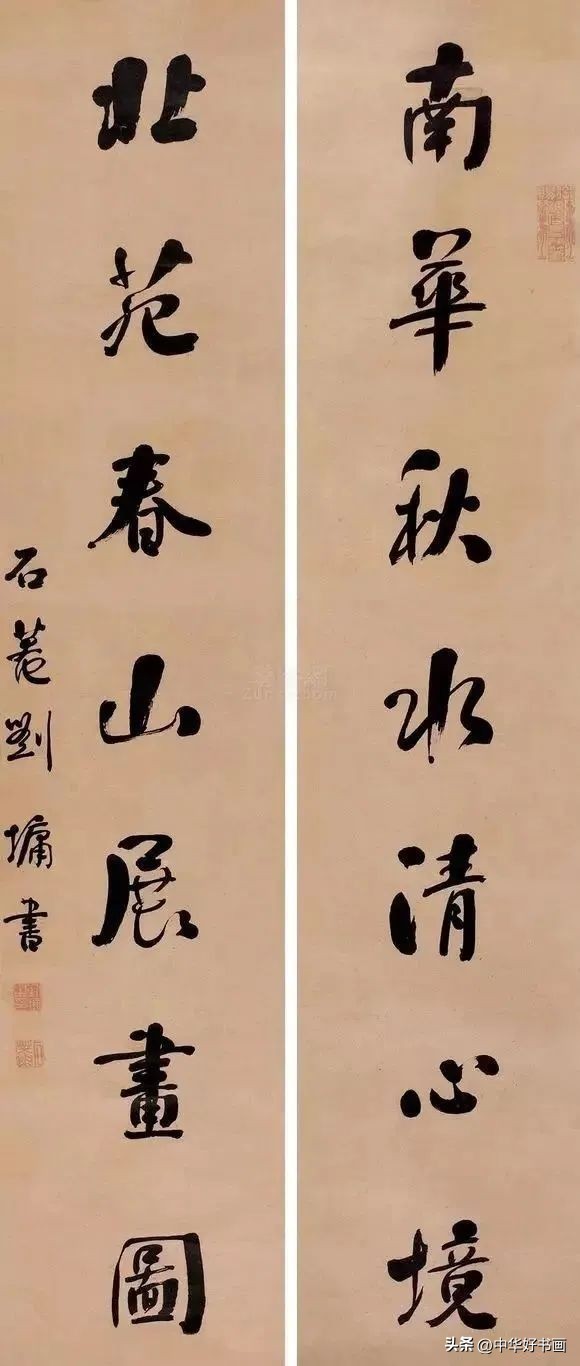 南華秋水清心境
北苑春山展畫圖
石菴劉墉書
头条 @中华好书画